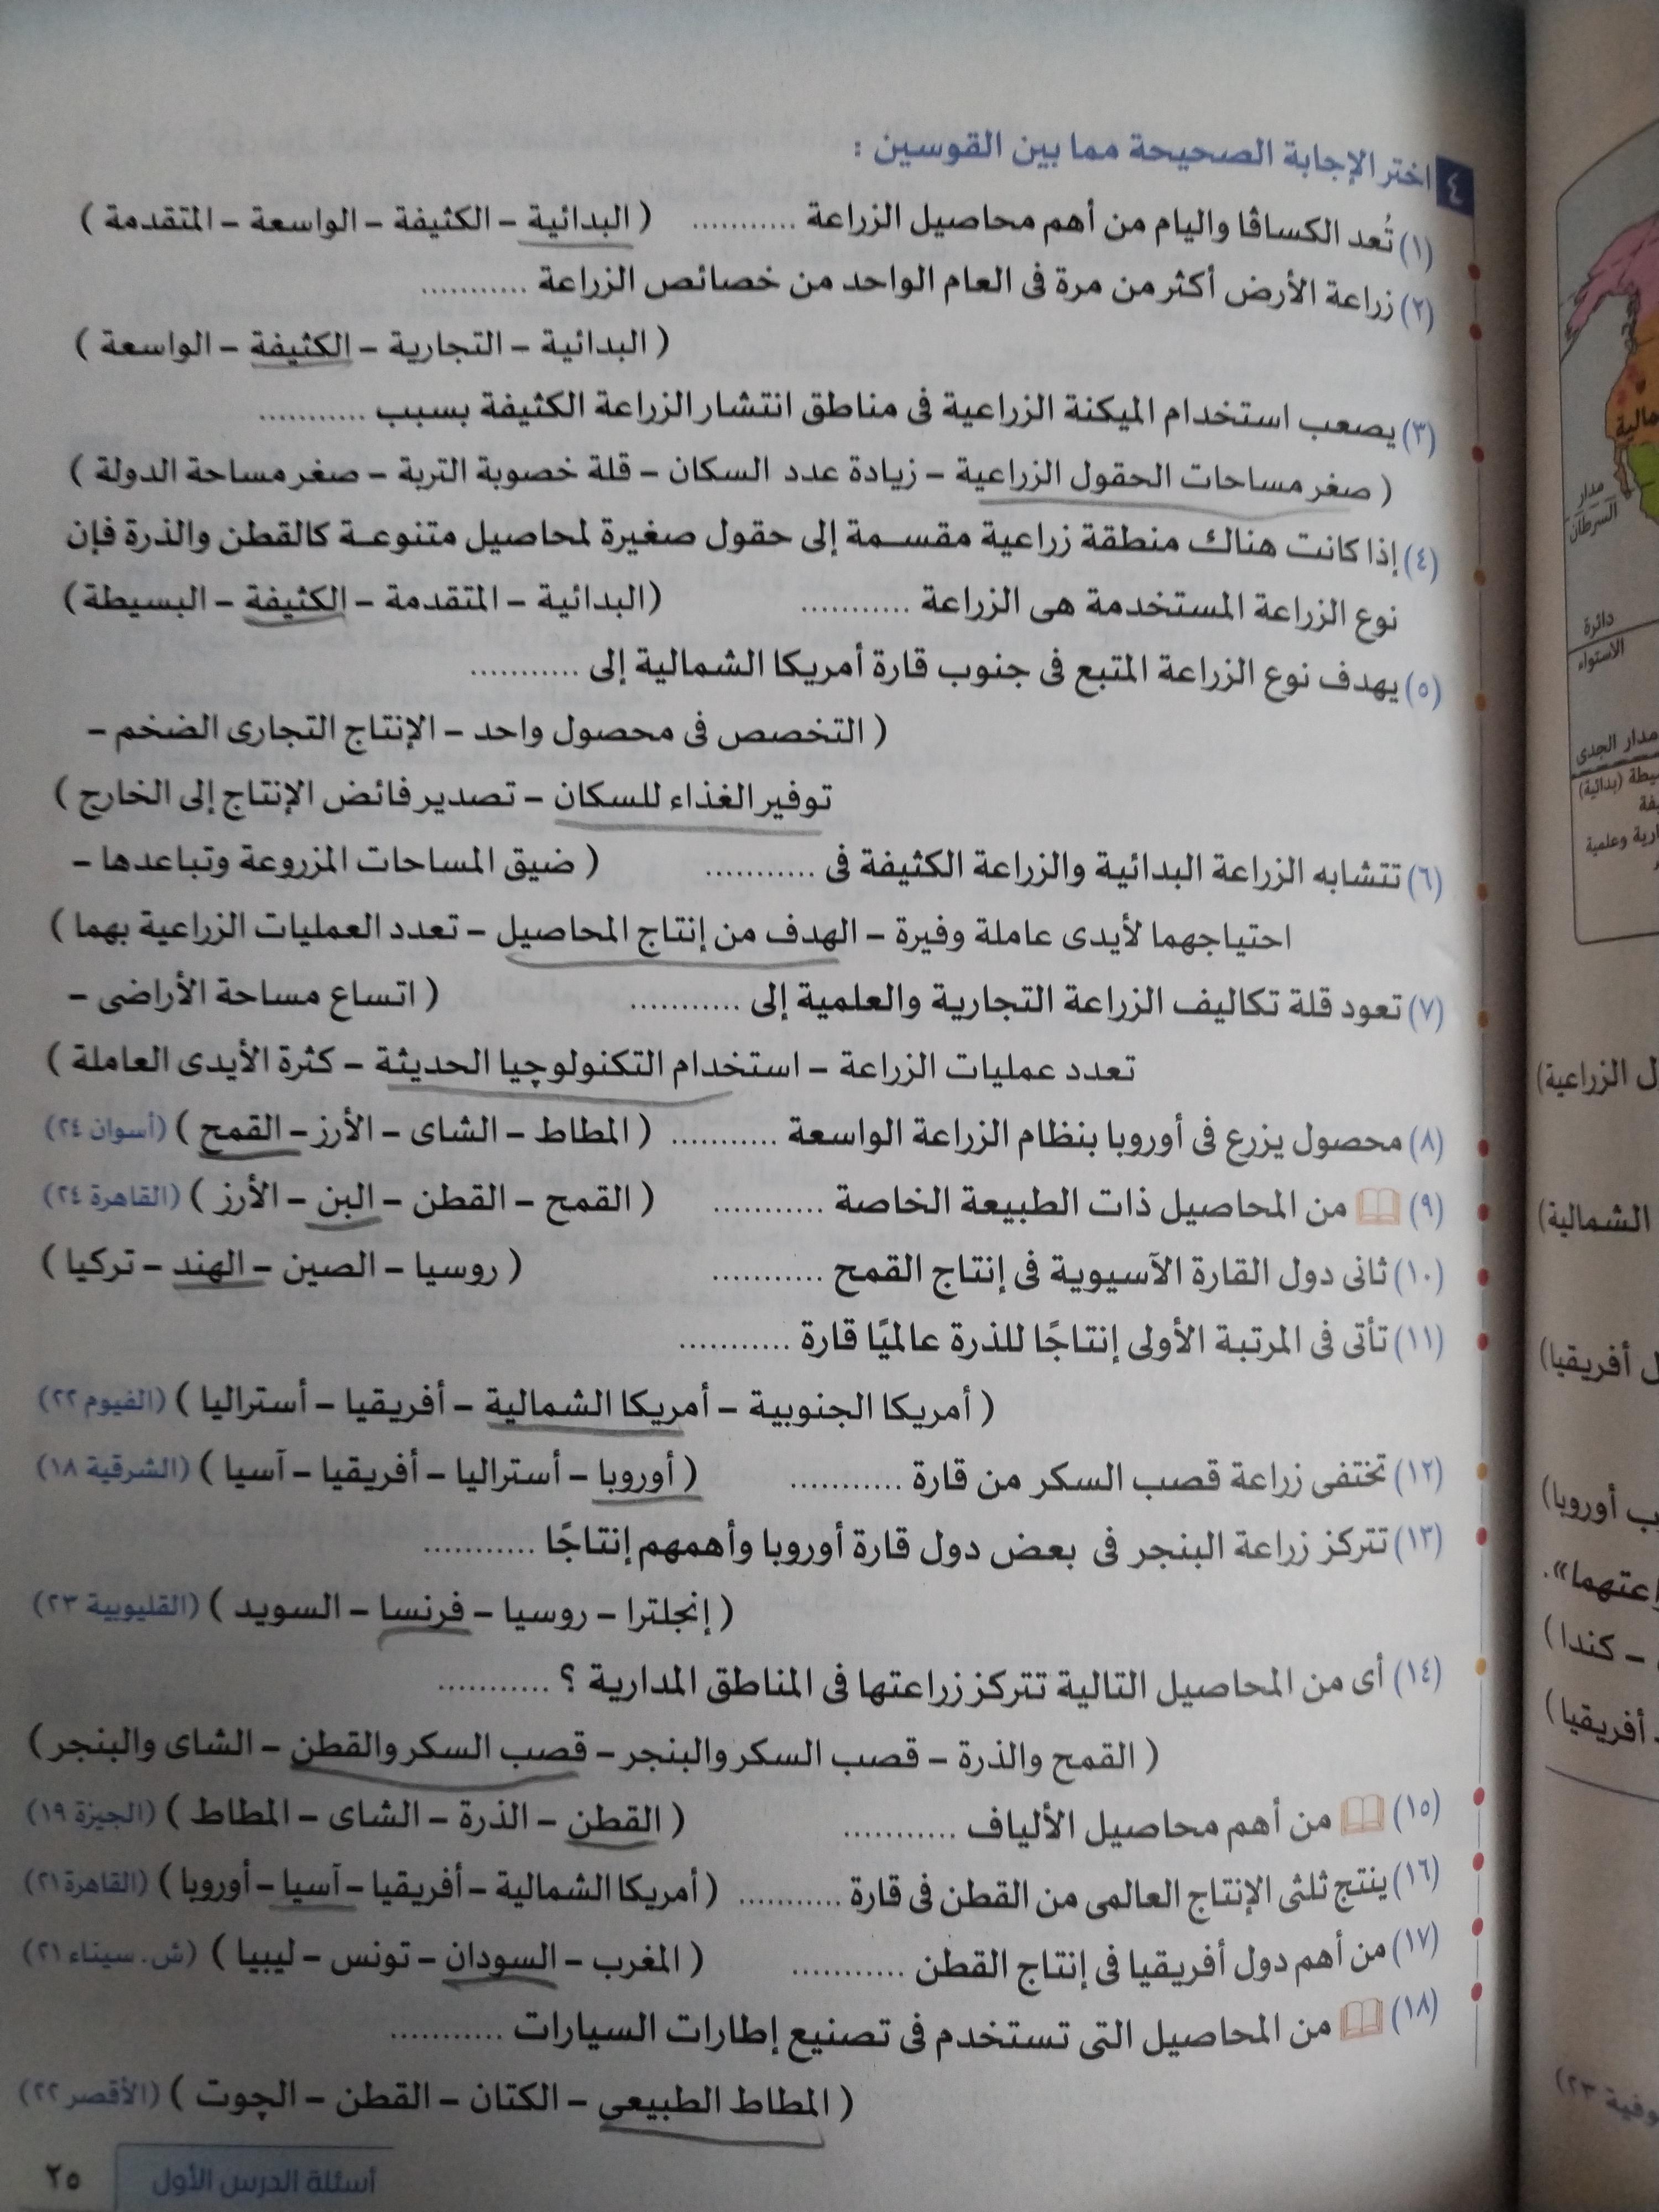 ٤ اختر الإجابة الصحيحة مما بين القوسين :
(١) تُعد الكساڤا واليام من أهم محاصيل الزراعة ........... ( البدائية – الكثيفة – الواسعة – المتقدمة )
(٢) زراعة الأرض أكثر من مرة فى العام الواحد من خصائص الزراعة ...........
( البدائية – التجارية – الكثيفة – الواسعة )
(٣) يصعب استخدام الميكنة الزراعية فى مناطق انتشار الزراعة الكثيفة بسبب ...........
( صغر مساحات الحقول الزراعية – زيادة عدد السكان – قلة خصوبة التربة – صغر مساحة الدولة )
(٤) إذا كانت هناك منطقة زراعية مقسمة إلى حقول صغيرة لمحاصيل متنوعة كالقطن والذرة فإن
نوع الزراعة المستخدمة هى الزراعة ........... (البدائية – المتقدمة – الكثيفة – البسيطة)
(٥) يهدف نوع الزراعة المتبع فى جنوب قارة أمريكا الشمالية إلى ...........
( التخصص فى محصول واحد – الإنتاج التجارى الضخم –
توفير الغذاء للسكان – تصدير فائض الإنتاج إلى الخارج )
(٦) تتشابه الزراعة البدائية والزراعة الكثيفة فى ........... ( ضيق المساحات المزروعة وتباعدها –
احتياجهما لأيدى عاملة وفيرة – الهدف من إنتاج المحاصيل – تعدد العمليات الزراعية بهما )
(٧) تعود قلة تكاليف الزراعة التجارية والعلمية إلى ........... ( اتساع مساحة الأراضى –
تعدد عمليات الزراعة – استخدام التكنولوچيا الحديثة – كثرة الأيدى العاملة )
(٨) محصول يزرع فى أوروبا بنظام الزراعة الواسعة ........... ( المطاط – الشاى – الأرز – القمح ) (أسوان ٢٤)
(٩) من المحاصيل ذات الطبيعة الخاصة ........... ( القمح – القطن – البن – الأرز ) (القاهرة ٢٤)
(١٠) ثانى دول القارة الآسيوية فى إنتاج القمح ........... ( روسيا – الصين – الهند – تركيا )
(١١) تأتى فى المرتبة الأولى إنتاجًا للذرة عالميًا قارة ...........
( أمريكا الجنوبية – أمريكا الشمالية – أفريقيا – أستراليا ) (الفيوم ٢٢)
(١٢) تختفى زراعة قصب السكر من قارة ........... ( أوروبا – أستراليا – أفريقيا – آسيا ) (الشرقية ١٨)
(١٣) تتركز زراعة البنجر فى بعض دول قارة أوروبا وأهمهم إنتاجًا ...........
( إنجلترا – روسيا – فرنسا – السويد ) (القليوبية ٢٣)
(١٤) أى من المحاصيل التالية تتركز زراعتها فى المناطق المدارية ؟ ...........
( القمح والذرة – قصب السكر والبنجر – قصب السكر والقطن – الشاى والبنجر )
(١٥) من أهم محاصيل الألياف ........... ( القطن – الذرة – الشاى – المطاط ) (الجيزة ١٩)
(١٦) ينتج ثلثى الإنتاج العالمى من القطن فى قارة ........... ( أمريكا الشمالية – أفريقيا – آسيا – أوروبا ) (القاهرة ٢١)
(١٧) من أهم دول أفريقيا فى إنتاج القطن ........... ( المغرب – السودان – تونس – ليبيا ) (ش. سيناء ٢١)
(١٨) من المحاصيل التى تستخدم فى تصنيع إطارات السيارات ...........
( المطاط الطبيعى – الكتان – القطن – الچوت ) (الأقصر ٢٢)
أسئلة الدرس الأول ٢٥
مدار
السرطان
دائرة
الاستواء
مدار الجدى
(بدائية)
وعلمية
الزراعية)
الشمالية)
أفريقيا)
أوروبا)
– كندا )
أفريقيا)